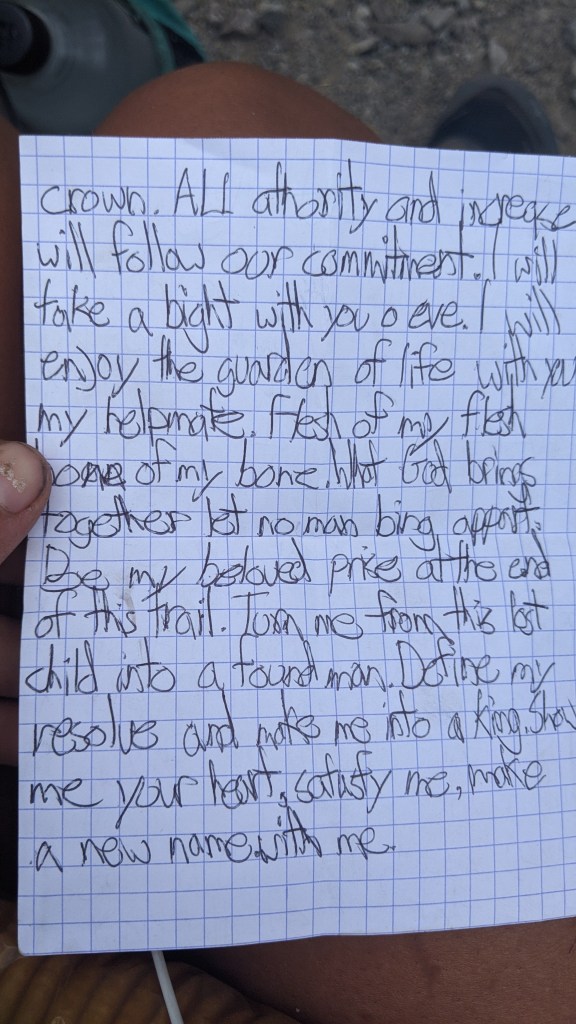 crown. ALL athority and increase
will follow our commitment. I will
take a bight with you o eve. I will
enjoy the guarden of life with you
my helpmate. Flesh of my flesh
bone of my bone. What God brings
together let no man bing appart.
Be my beloved prise at the end
of this trail. Turn me from this lost
child into a found man. Define my
resolve and make me into a king. Show
me your heart, satisfy me, make
a new name with me.